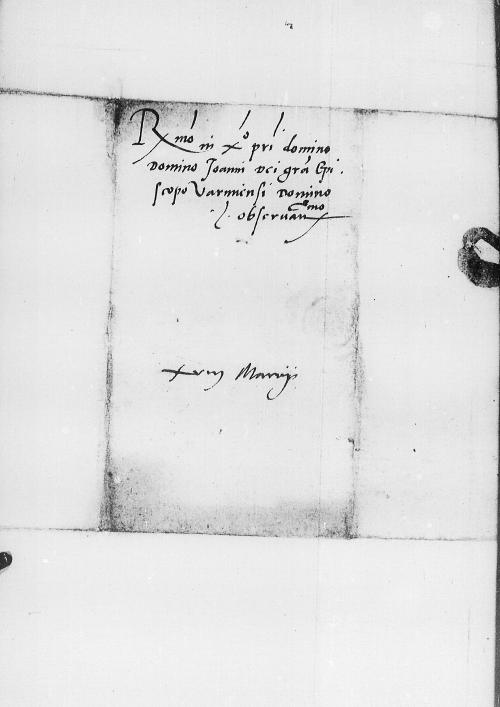 Rmo in Xo pri domino
domino Joanni Dei gra Epi
scopo Varmiensi Domino
observanmo
xviij Marcij